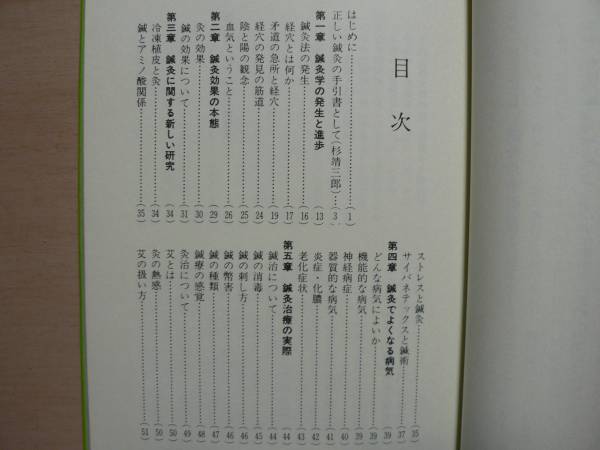 目次
はじめに……(1)
正しい鍼灸の手引書として(杉靖三郎)……(3)
第一章 鍼灸学の発生と進歩……(13)
鍼灸法の発生……(16)
経穴とは何か……(17)
矛道の急所と経穴……(19)
経穴の発見の筋道……(24)
陰と陽の観念……(25)
血気ということ……(26)
第二章 鍼灸効果の本態……(29)
灸の効果……(30)
鍼の効果について……(31)
第三章 鍼灸に関する新しい研究……(34)
冷凍植皮と灸……(34)
鍼とアミノ酸関係……(35)
ストレスと鍼灸……(35)
サイバネテックスと鍼術……(37)
第四章 鍼灸でよくなる病気……(39)
どんな病気によいか……(39)
機能的な病気……(39)
神経病症……(40)
器質的な病気……(41)
炎症・化膿……(42)
老化症状……(43)
第五章 鍼灸治療の実際……(44)
鍼治について……(44)
鍼の消毒……(45)
鍼の刺し方……(46)
鍼の弊害……(46)
鍼の種類……(47)
鍼療の感覚……(48)
灸治について……(49)
艾とは……(50)
灸の熱感……(50)
艾の扱い方……(51)